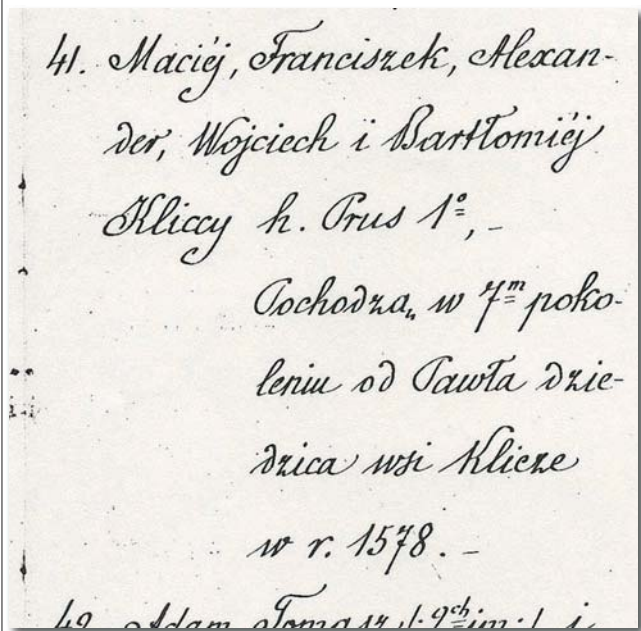 41. Maciéj, Franciszek, Alexan-
der, Wojciech i Bartłomiéj
Kliccy h. Prus 1º, -
Pochodzą w 7m poko-
leniu od Pawła dzie-
dzica wsi Klicze
w r. 1578. -
42. Adam Tomasz /: 2ch im: / i